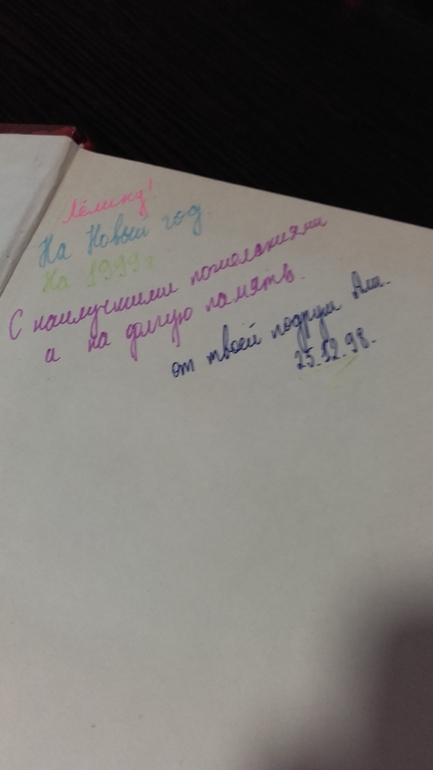 На Новый год.
На 1999 г
С наилучшими пожеланиями
и на долгую память.
от твоей подруги Али.
25.12.98.